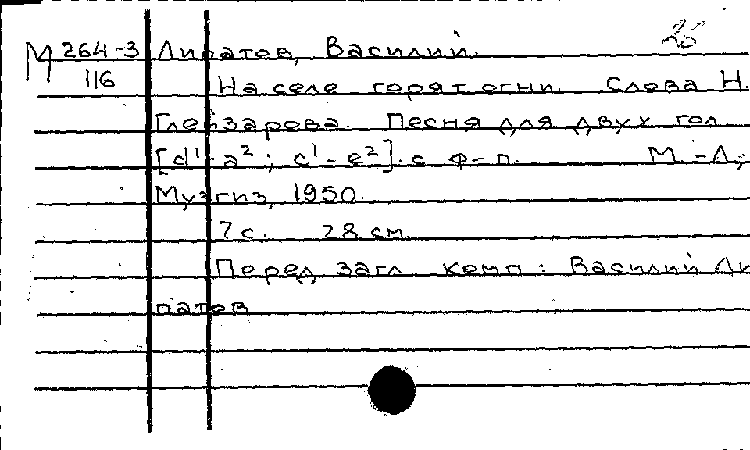 М 264-3 Липатов, Василий. 26
116 На селе горят огни. Слова Н.
Глейзарова. Песня для двух гол.
[d¹-a²; c¹-e²]. с ф-п. М.-Л.,
Музгиз, 1950.
7 с. 28 см.
Перед загл. комп.: Василий Ли
патов